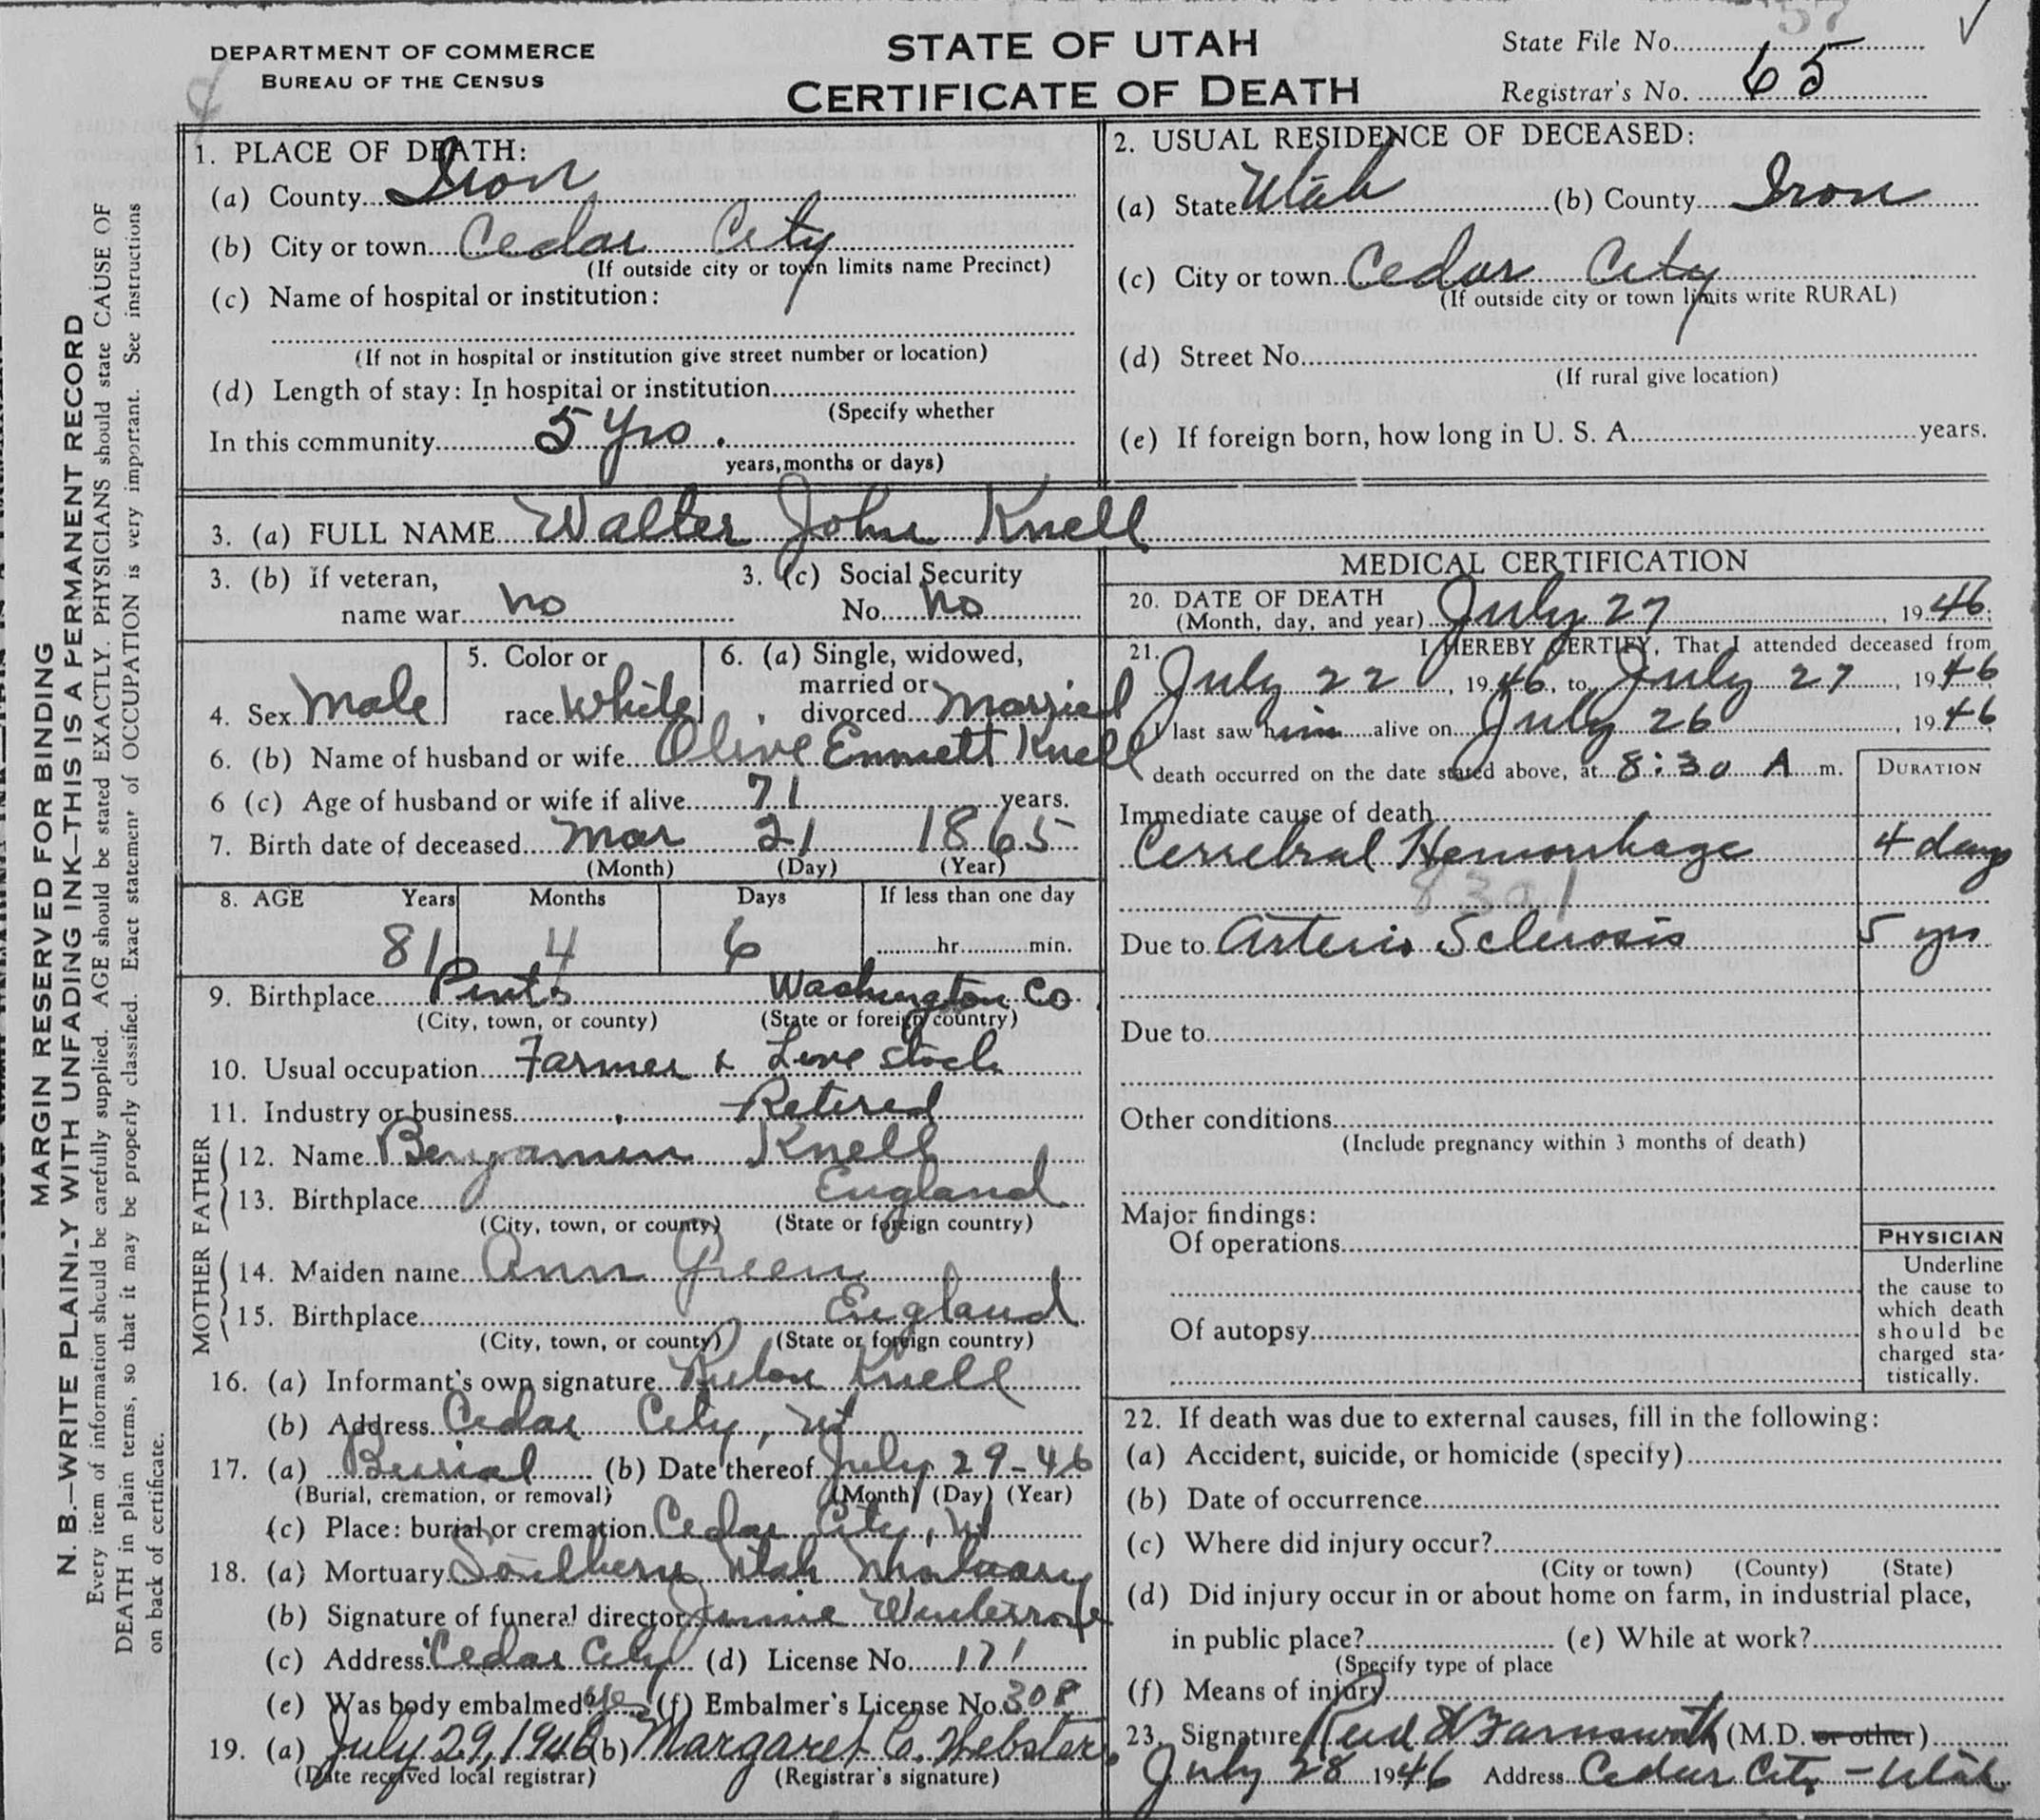 57
DEPARTMENT OF COMMERCE
BUREAU OF THE CENSUS
STATE OF UTAH
CERTIFICATE OF DEATH
State File No.
Registrar's No. 65
MARGIN RESERVED FOR BINDING
N. B.—WRITE PLAINLY WITH UNFADING INK—THIS IS A PERMANENT RECORD
Every item of information should be carefully supplied. AGE should be stated EXACTLY. PHYSICIANS should state CAUSE OF
DEATH in plain terms, so that it may be properly classified. Exact statement of OCCUPATION is very important. See instructions
on back of certificate.
1. PLACE OF DEATH:
(a) County Iron
(b) City or town Cedar City
(If outside city or town limits name Precinct)
(c) Name of hospital or institution:
(If not in hospital or institution give street number or location)
(d) Length of stay: In hospital or institution
(Specify whether
In this community 5 yrs.
years, months or days)
2. USUAL RESIDENCE OF DECEASED:
(a) State Utah (b) County Iron
(c) City or town Cedar City
(If outside city or town limits write RURAL)
(d) Street No.
(If rural give location)
(e) If foreign born, how long in U. S. A. years.
3. (a) FULL NAME Walter John Knell
3. (b) If veteran,
name war no
3. (c) Social Security
No. no
4. Sex Male
5. Color or
race White
6. (a) Single, widowed,
married or
divorced Married
6. (b) Name of husband or wife Olive Emmett Knell
6 (c) Age of husband or wife if alive 71 years.
7. Birth date of deceased Mar 21 1865
(Month) (Day) (Year)
8. AGE Years Months Days If less than one day
81 4 6 hr. min.
9. Birthplace Pinto Washington Co.
(City, town, or county) (State or foreign country)
10. Usual occupation Farmer & Live stock
11. Industry or business Retired
FATHER
12. Name Benjamin Knell
13. Birthplace England
(City, town, or county) (State or foreign country)
MOTHER
14. Maiden name Ann Green
15. Birthplace England
(City, town, or county) (State or foreign country)
16. (a) Informant's own signature Rulon Knell
(b) Address Cedar City, Ut
17. (a) Burial (b) Date thereof July 29-46
(Burial, cremation, or removal) (Month) (Day) (Year)
(c) Place: burial or cremation Cedar City, Ut
18. (a) Mortuary Southern Utah Mortuary
(b) Signature of funeral director Jimmie Winterrose
(c) Address Cedar City (d) License No. 171
(e) Was body embalmed? yes (f) Embalmer's License No. 308
19. (a) July 29, 1946 (b) Margaret C. Webster
(Date received local registrar) (Registrar's signature)
MEDICAL CERTIFICATION
20. DATE OF DEATH
(Month, day, and year) July 27, 1946.
21. I HEREBY CERTIFY, That I attended deceased from
July 22, 1946, to July 27, 1946
I last saw him alive on July 26, 1946
death occurred on the date stated above, at 8:30 A m.
DURATION
Immediate cause of death
Cerrebral Hemorrhage 4 days
83a1
Due to Arterio Sclerosis 5 yrs
Due to
Other conditions
(Include pregnancy within 3 months of death)
Major findings:
Of operations
Of autopsy
PHYSICIAN
Underline
the cause to
which death
should be
charged sta-
tistically.
22. If death was due to external causes, fill in the following:
(a) Accident, suicide, or homicide (specify)
(b) Date of occurrence
(c) Where did injury occur?
(City or town) (County) (State)
(d) Did injury occur in or about home on farm, in industrial place,
in public place? (e) While at work?
(Specify type of place
(f) Means of injury
23. Signature Reed W Farnsworth (M.D. or other)
July 28 1946 Address Cedar City - Utah